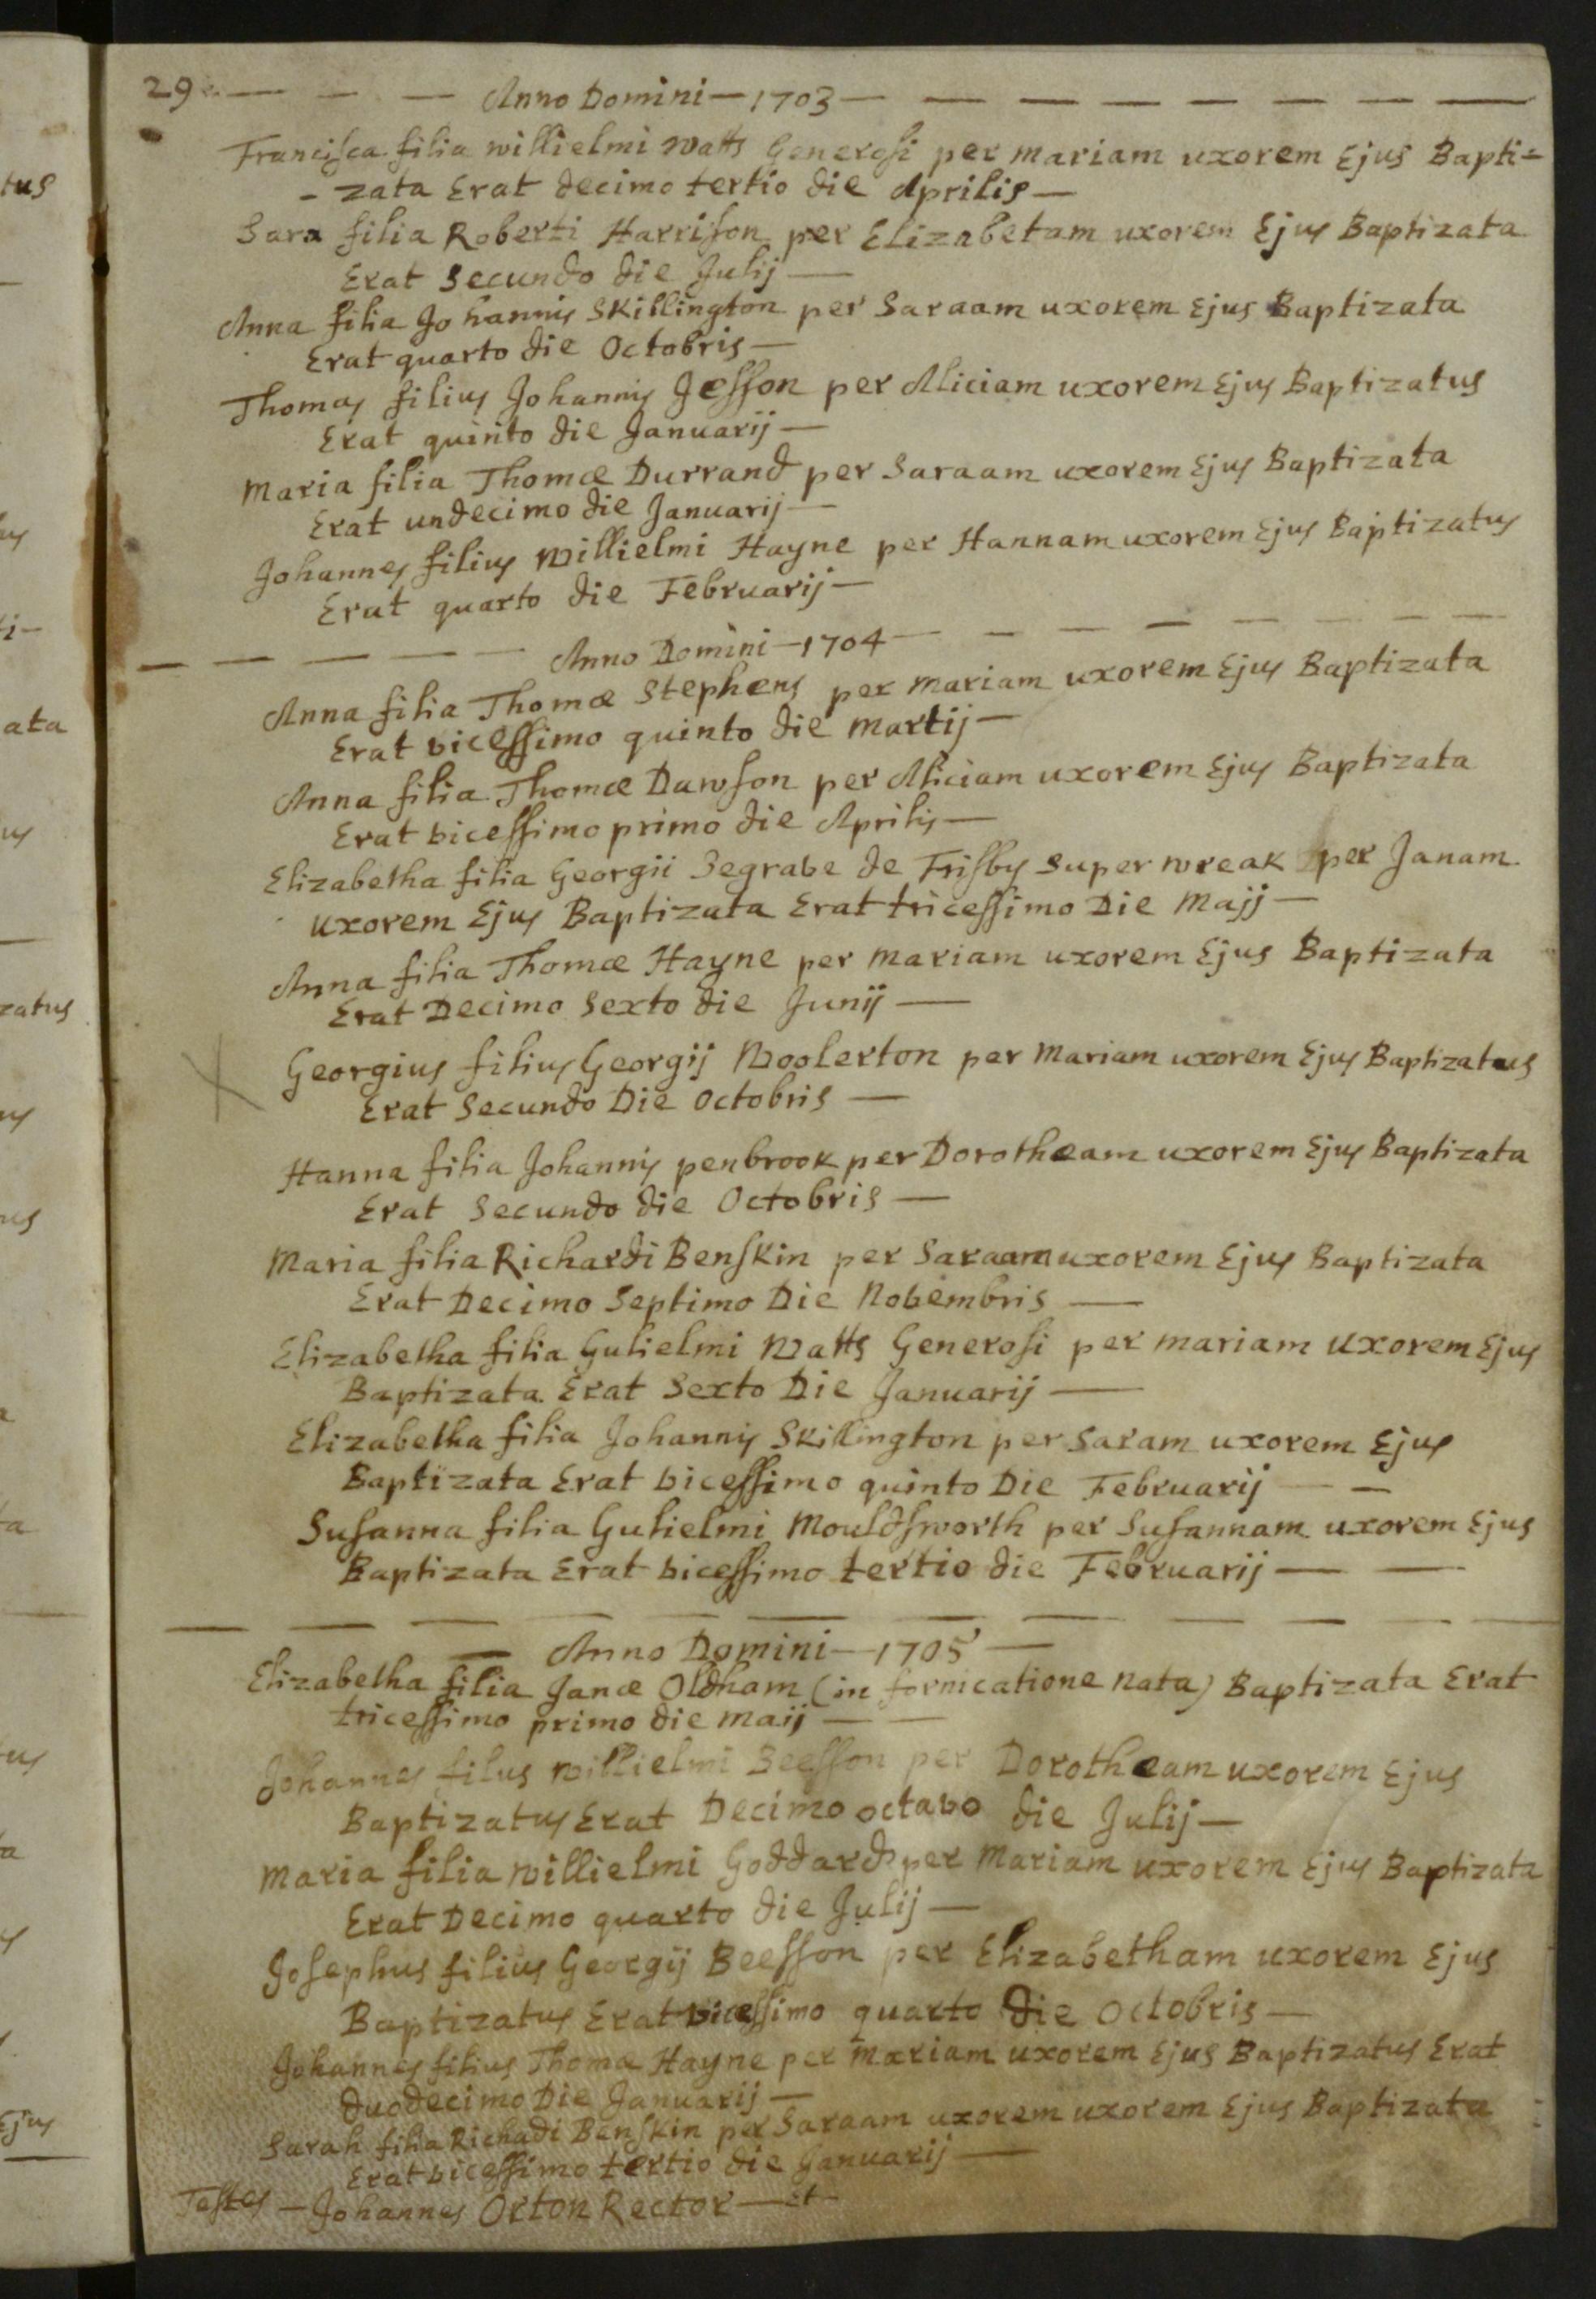 29 — — — Anno Domini — 1703 — — — — — — — —
Francisca filia willielmi Watts Generosi per mariam uxorem Ejus Bapti=
- zata Erat decimo tertio die Aprilis —
Sara filia Roberti Harrison per Elizabetam uxorem Ejus Baptizata
Erat Secundo die Julij —
Anna filia Johannis Skillington per Saraam uxorem Ejus Baptizata
Erat quarto die Octobris —
Thomas filius Johannis Jesson per Aliciam uxorem Ejus Baptizatus
Erat quinto die Januarij —
Maria filia Thomæ Durrand per Saraam uxorem Ejus Baptizata
Erat undecimo die Januarij —
Johannes filius Willielmi Hayne per Hannam uxorem Ejus Baptizatus
Erat quarto die Februarij —
— — — — — Anno Domini — 1704 — — — — — — — —
Anna filia Thomæ Stephens per mariam uxorem Ejus Baptizata
Erat vicessimo quinto die Martij —
Anna filia Thomæ Dawson per Aliciam uxorem Ejus Baptizata
Erat vicessimo primo die Aprilis —
Elizabetha filia Georgii Segrave de Frisby Super wreak per Janam
uxorem Ejus Baptizata Erat tricessimo Die Majj —
Anna filia Thomæ Hayne per mariam uxorem Ejus Baptizata
Erat Decimo Sexto die Junij —
Georgius filius Georgij Woolerton per Mariam uxorem Ejus Baptizatus
Erat Secundo Die Octobris —
Hanna filia Johannis penbrook per Dorotheam uxorem Ejus Baptizata
Erat Secundo die Octobris —
Maria filia Richardi Benskin per Saraam uxorem Ejus Baptizata
Erat Decimo Septimo Die Novembris —
Elizabetha filia Gulielmi Watts Generosi per mariam uxorem Ejus
Baptizata Erat Sexto Die Januarij —
Elizabetha filia Johannis Skillington per Saram uxorem Ejus
Baptizata Erat vicessimo quinto Die Februarij — —
Susanna filia Gulielmi Mouldsworth per Susannam uxorem Ejus
Baptizata Erat vicessimo tertio die Februarij — —
— Anno Domini — 1705 —
Elizabetha filia Janæ Oldham (in fornicatione nata) Baptizata Erat
tricessimo primo die maij — —
Johannes filus willielmi Beesson per Dorotheam uxorem Ejus
Baptizatus Erat Decimo octavo die Julij —
Maria filia willielmi Goddard per Mariam uxorem Ejus Baptizata
Erat Decimo quarto die Julij —
Josephus filius Georgij Beesson per Elizabetham uxorem Ejus
Baptizatus Erat vicessimo quarto die Octobris —
Johannes filius Thomæ Hayne per Mariam uxorem Ejus Baptizatus Erat
duodecimo Die Januarij —
Sarah filia Richadi Benskin per Saraam uxorem uxorem Ejus Baptizata
Erat vicessimo tertio die Januarij —
Testes — Johannes Orton Rector — et